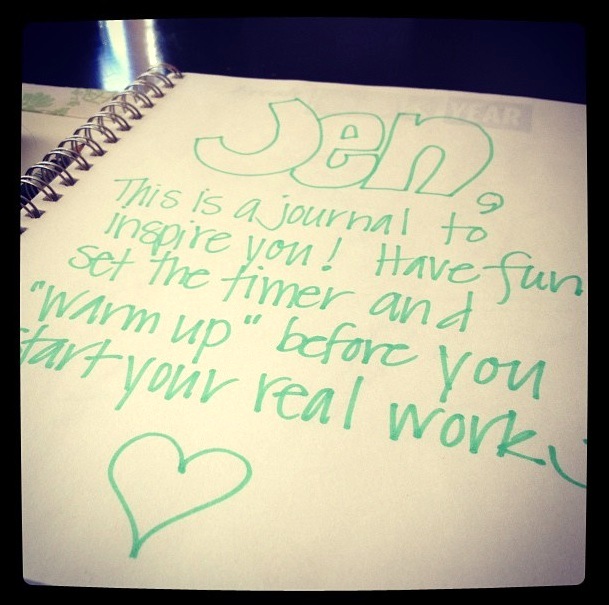 Jen,
This is a journal to
inspire you! Have fun
set the timer and
"warm up" before you
start your real work
YEAR